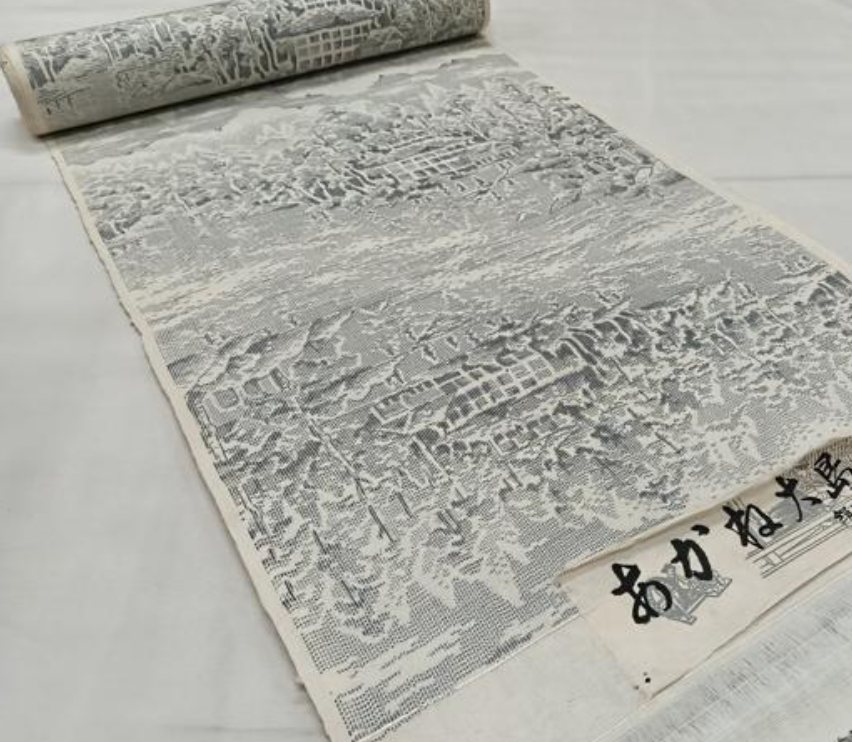 あかね大島